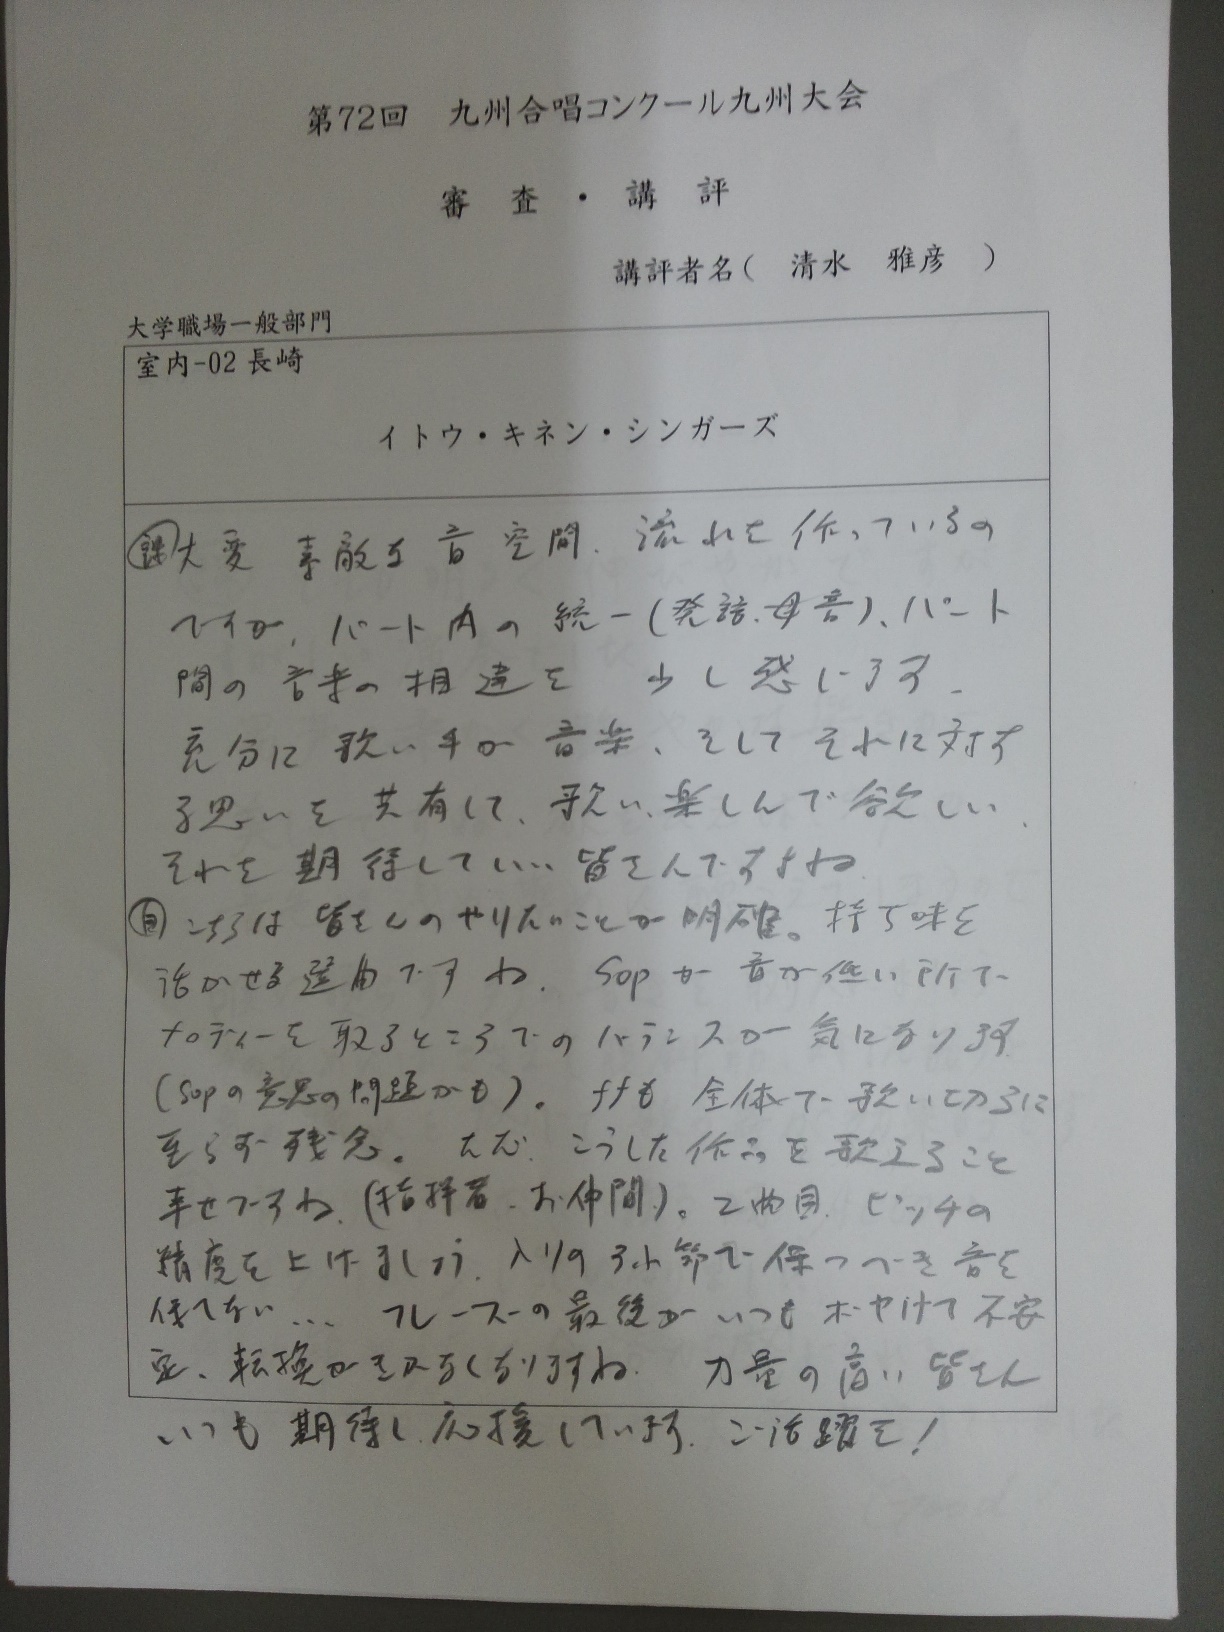 第72回 九州合唱コンクール九州大会
審 査 ・ 講 評
講評者名( 清水 雅彦 )
大学職場一般部門
室内-02 長崎
イトウ・キネン・シンガーズ
課 大変 素敵な音空間、流れを作っているの
ですが、パート内の統一(発語、母音)、パート
間の音楽の相違を 少し感じます。
充分に歌い手が音楽、そしてそれに対す
る思いを共有して、歌い、楽しんで欲しい、
それを期待していい皆さんですよね。
自 こちらは皆さんのやりたいことが明確。持ち味を
活かせる選曲ですね。Sopが音が低い所で
メロディーを取るところでのバランスが気になります
(Sopの意思の問題かも)。ffも全体で歌い切るに
至らず残念。ただ、こうした作品を歌えること
幸せですね、(指揮者、お仲間)。2曲目、ピッチの
精度を上げましょう、入りの小節で保つべき音を
保てない… フレーズの最後がいつもボヤけて不安
定、転換が きなくなりますね。 力量の高い皆さん
いつも期待し、応援しています、ご活躍を!